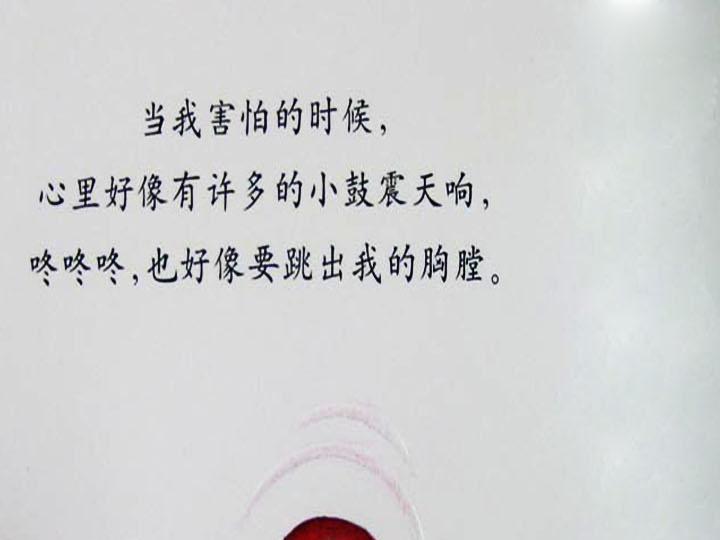 当我害怕的时候，
心里好像有许多的小鼓震天响，
咚咚咚，也好像要跳出我的胸膛。